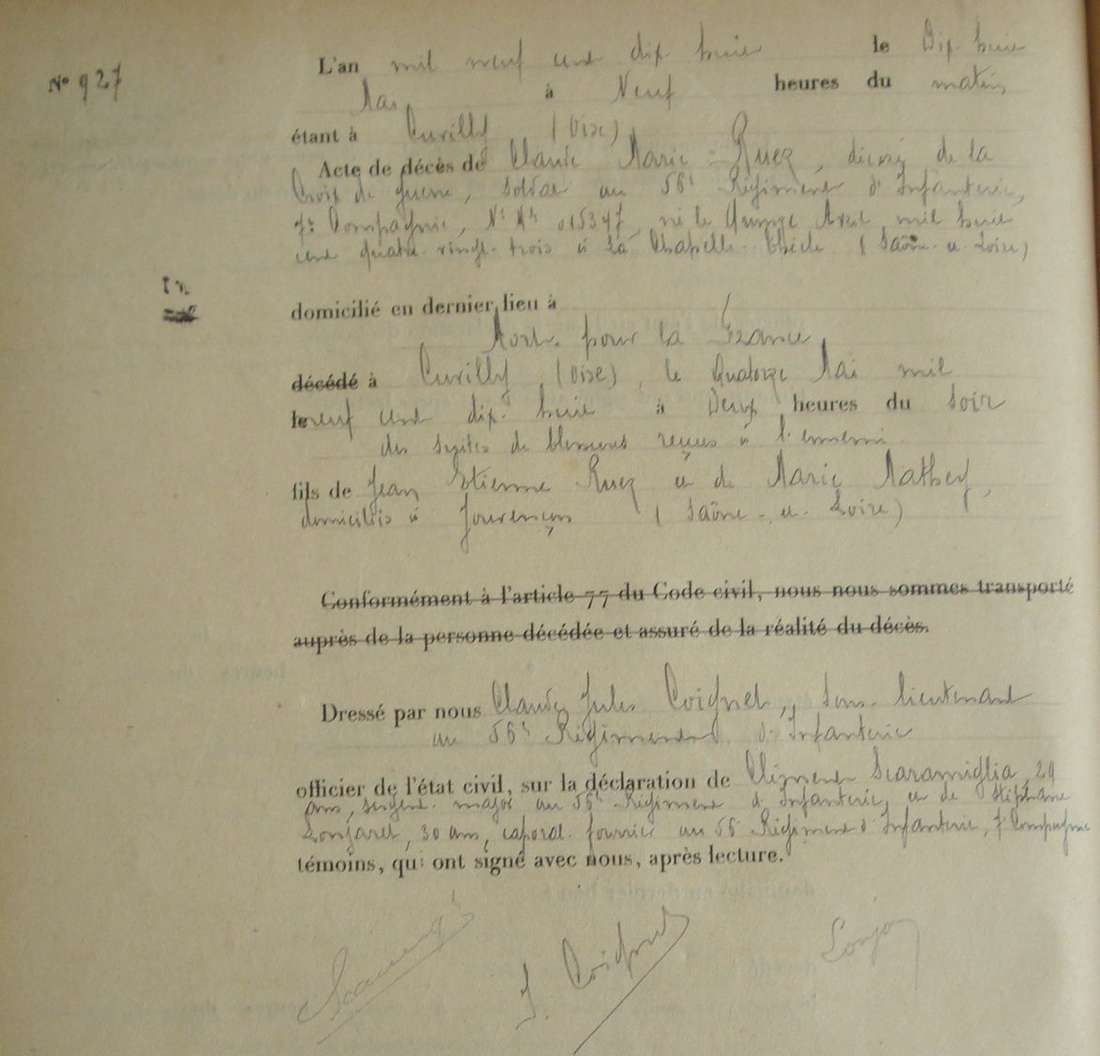 N° 927
L'an mil neuf cent dix huit le Dix huit
Mai à Neuf heures du matin
étant à Cuvilly (Oise)
Acte de décès de Claude Marie Ruez, décoré de la
Croix de guerre, soldat au 56e Régiment d'Infanterie,
7e Compagnie, N° Mle 015347, né le Quinze Avril mil huit
cent quatre-vingt-trois à La Chapelle-Thècle (Saône-et-Loire)
domicilié en dernier lieu à
Mort pour la France
décédé à Cuvilly (Oise), le Quatorze Mai mil
le neuf cent dix-huit à Deux heures du soir
des suites de blessures reçues à l'ennemi
fils de Jean Etienne Ruez et de Marie Mathey,
domiciliés à Jouvençon (Saône-et-Loire)
Conformément à l'article 77 du Code civil, nous nous sommes transporté
auprès de la personne décédée et assuré de la réalité du décès.
Dressé par nous Claude Jules Coignet, sous-lieutenant
au 56e Régiment d'Infanterie
officier de l'état civil, sur la déclaration de Clément Scaramiglia, 29
ans, sergent-major au 56e Régiment d'Infanterie, et de Stéphane
Lonjaret, 30 ans, caporal-fourrier au 56e Régiment d'Infanterie, 7e Compagnie
témoins, qui ont signé avec nous, après lecture.
J. Coignet